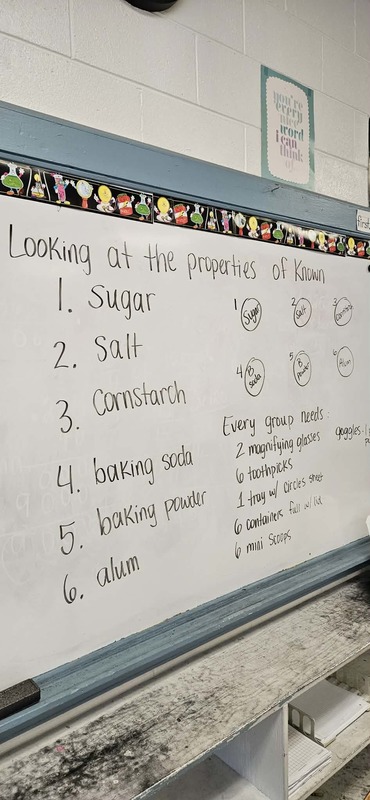 you're
every
nice
word
i can
think
of
first
Looking at the properties of Known
1. Sugar
2. Salt
3. Cornstarch
4. baking soda
5. baking powder
6. alum
1 Sugar
2 Salt
3 Cornstarch
4 B soda
5 B powder
6 Alum
Every group needs:
2 magnifying glasses
6 toothpicks
1 tray w/ circles sheet
6 containers full w/ lid
6 mini scoops
goggles - 1